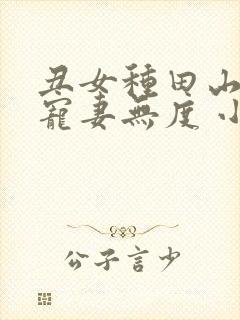 丑女種田山
寵妻無度小
公子言少